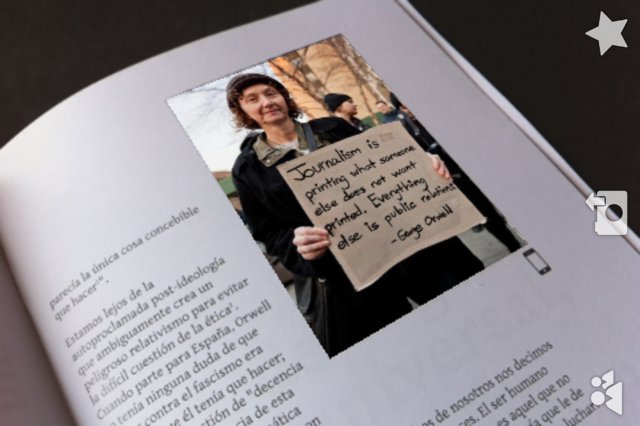 Journalism is
printing what someone
else does not want
printed. Everything
else is public relations
-George Orwell
parecía la única cosa concebible
que hacer".
Estamos lejos de la
autoproclamada post-ideología
que ambiguamente crea un
peligroso relativismo para evitar
la difícil cuestión de la ética'.
Cuando parte para España, Orwell
no tenía ninguna duda de que
contra el fascismo era
que él tenía que hacer;
de "decencia
de esta
de nosotros nos decimos
El ser humano
es aquel que no
que le de